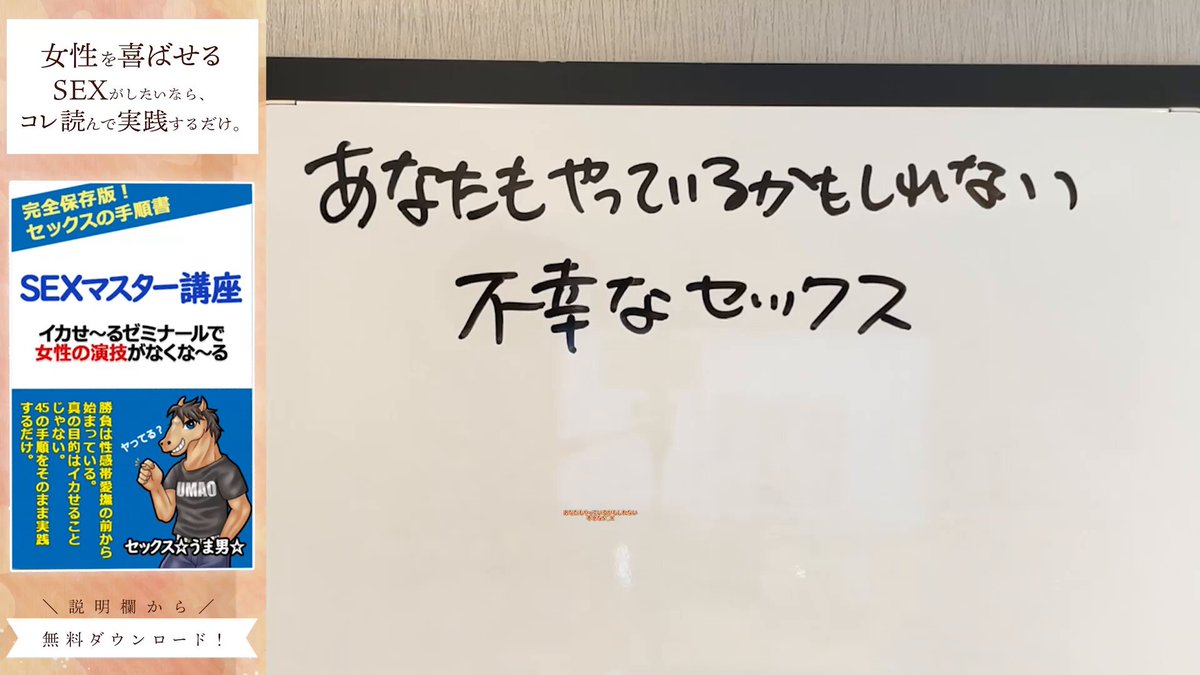 女性を喜ばせる
SEXがしたいなら、
コレ読んで実践するだけ。
完全保存版！
セックスの手順書
SEXマスター講座
イカせ〜るゼミナールで
女性の演技がなくな〜る
勝負は性感帯愛撫の前から
始まっている。
真の目的はイカせること
じゃない。
45の手順をそのまま実践
するだけ。
ヤってる？
UMAO
セックス☆うま男☆
＼説明欄から／
無料ダウンロード！
あなたもやっているかもしれない
不幸なセックス
あなたもやっているかもしれない